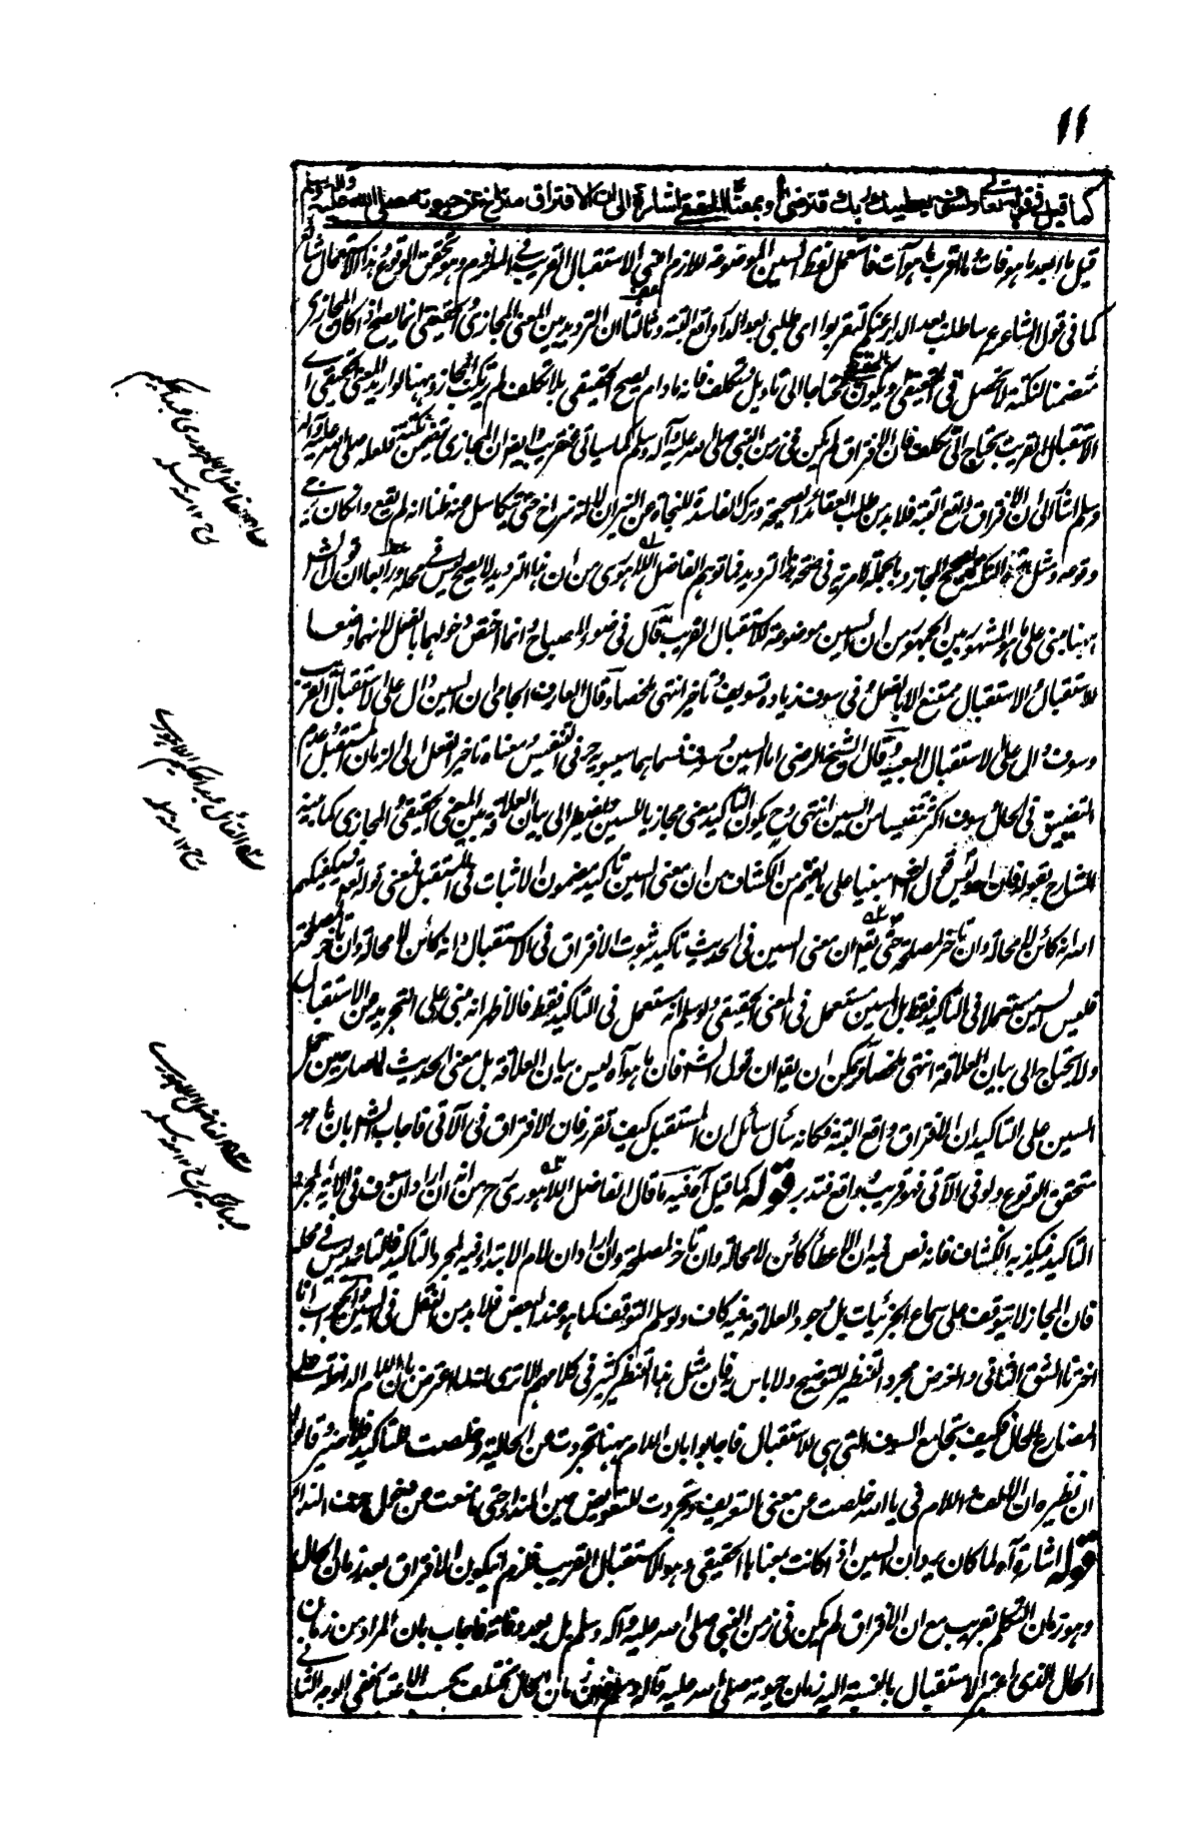 ١١
كما قيل في قوله تعالى ولسوف يعطيك ربك فترضى أو بمعناه الحقيقي إشارة إلى أن الافتراق متراخ عن حيوته صلى الله عليه وآله وسلم
قيل ما ابعد ما هو فات وما اقرب ما هو آت فاستعمل لفظ السين الموضوعة للازم اعني الاستقبال القريب في الملزوم وهو تحقق الوقوع وهذا الاستعمال شائع
كما في قول الشاعر ع ساطلب بعد الدار عنكم لتقربوا اى طلبي بعد الدار واقع البتة وثالثا ان الترديد بين المعنى المجازي والحقيقي انما يصح اذا كان المجازي
متضمنا لنكتة لا تحصل في الحقيقي ويكون الحقيقي محتاجا الى تاويل وتكلف فانه ما دام يصح الحقيقي بلا تكلف لم يرتكب المجاز وههنا لو اريد المعنى الحقيقي اى
الاستقبال القريب يحتاج الى تكلف فان الافتراق لم يكن في زمن النبي صلى الله عليه وآله وسلم كما سيأتي عنقريب وايضا ان المجازي تضمن نكتة فلعله صلى الله عليه وآله
وسلم اشار الى ان الافتراق واقع البتة فلا بد من طلب العقائد الصحيحة وترك الفاسدة للنجاة عن النيران لا انه متراخ حتى يتكاسل عنه ظنا انه لم يقع وان كان يرجى
وقوعه ومثل هذه النكتة مصحح المجاز وبالجملة لا مرية في صحة هذا الترديد فما توهم الفاضل اللاهوري من ان هذا الترديد لا يصح ليس في محله ورابعا ان قول الش
ههنا مبني على ما هو المشهور بين الجمهور من ان السين موضوعة للاستقبال القريب قال في ضوء المصباح وانما اختص دخولهما بالفعل لانهما وضعا
للاستقبال والاستقبال ممتنع الا بالفعل وفي سوف زيادة تسويف وتاخير انتهى ملخصا وقال العارف الجامي ان السين دال على الاستقبال القريب
وسوف دال على الاستقبال البعيد وقال الشيخ الرضي اما السين وسوف فسماهما سيبويه حرفي التنفيس ومعناه تاخير الفعل الى الزمان المستقبل وعدم
التضييق في الحال وسوف اكثر تنفيسا من السين انتهى وح يكون التاكيد معنى مجازيا للسين فيضطر الى بيان العلاقة بين المعنى الحقيقي والمجازي كما بينه
الشارح بقوله فان اه وليس قول الش مبنيا على ما يفهم من الكشاف من ان معنى السين تاكيد مضمون الاثبات في المستقبل فمعنى قوله تع فسيكفيكهم
الله انه كائن لا محالة وان تاخر لمصلحة حتى يق ان معنى السين في الحديث تاكيد ثبوت الافتراق في الاستقبال وانه كائن لا محالة وان تاخر لمصلحة
فليس السين مستعملا في التاكيد فقط بل السين مستعمل في المعنى الحقيقي ولو سلم انه مستعمل في التاكيد فقط فالاظهر انه مبني على التجريد عن الاستقبال
ولا يحتاج الى بيان العلاقة انتهى ملخصا ويمكن ان يق ان قول الش فان ما هو آه ليس بيان العلاقة بل معنى الحديث لما صار حين حمل
السين على التاكيد ان الافتراق واقع البتة فكانه سأل سائل ان المستقبل كيف تقرر فان الافتراق في الآتي فاجاب الش بان ما هو
متحقق الوقوع ولو في الآتي فهو قريب واقع فتدبر قوله كما قيل آه فيه ما قال الفاضل اللاهوري رح من انه ان اراد ان سوف في الآية لمجرد
التاكيد فيكذبه الكشاف فانه نص فيه ان الاعطاء كائن لا محالة وان تاخر لمصلحة وان اراد ان لام الابتداء فيه لمجرد التاكيد فالتائيد ليس في محله
فان المجاز لا يتوقف على سماع الجزئيات بل وجود العلاقة فيه كاف ولو سلم التوقف كما هو عند البعض فلا بد من النقل في السين والجواب انا
اخترنا الشق الثاني والغرض مجرد التنظير للتوضيح ولا باس به فان مثل هذا التنظير كثير في كلامهم الا ترى انه لما اعترض بان اللام الداخلة على
المضارع للحال فكيف تجامع السوف التي هي للاستقبال فاجابوا بان اللام ههنا تجردت عن الحالية وخلصت للتاكيد فلا ضير وقالوا
ان نظيره ان الالف واللام في يا الله خلصت عن معنى التعريف وتجردت للتعويض حين النداء حتى ما منعت من دخول حرف النداء
قوله اشارة آه لما كان يرد ان السين اذا كانت بمعناها الحقيقي وهو الاستقبال القريب فلزم ان يكون الافتراق بعد زمان الحال
وهو زمان التكلم بقريب مع ان الافتراق لم يكن في زمن النبي صلى الله عليه وآله وسلم بل بعد وفاته فاجاب بان المراد من زمان
الحال الذي اعتبر الاستقبال بالنسبة اليه زمان حيوته صلى الله عليه وآله وسلم فان زمان الحال يختلف بحسب الاعتبار ففي الوجه الثاني